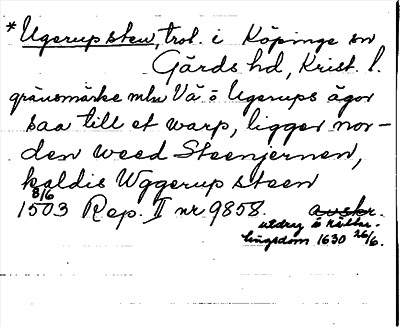 *Ugerup sten, trol. i Köpinge sn
Gärds hd, Krist. l.
gränsmärke mln Vä o Ugerups ägor
saa till et warp, ligger nor-
den weed Steenjernen,
kaldis Wggerup steen
8/6
1503 Rep. II nr 9858. avskr.
utdrag o källar-
lingsdom 1630 26/6.